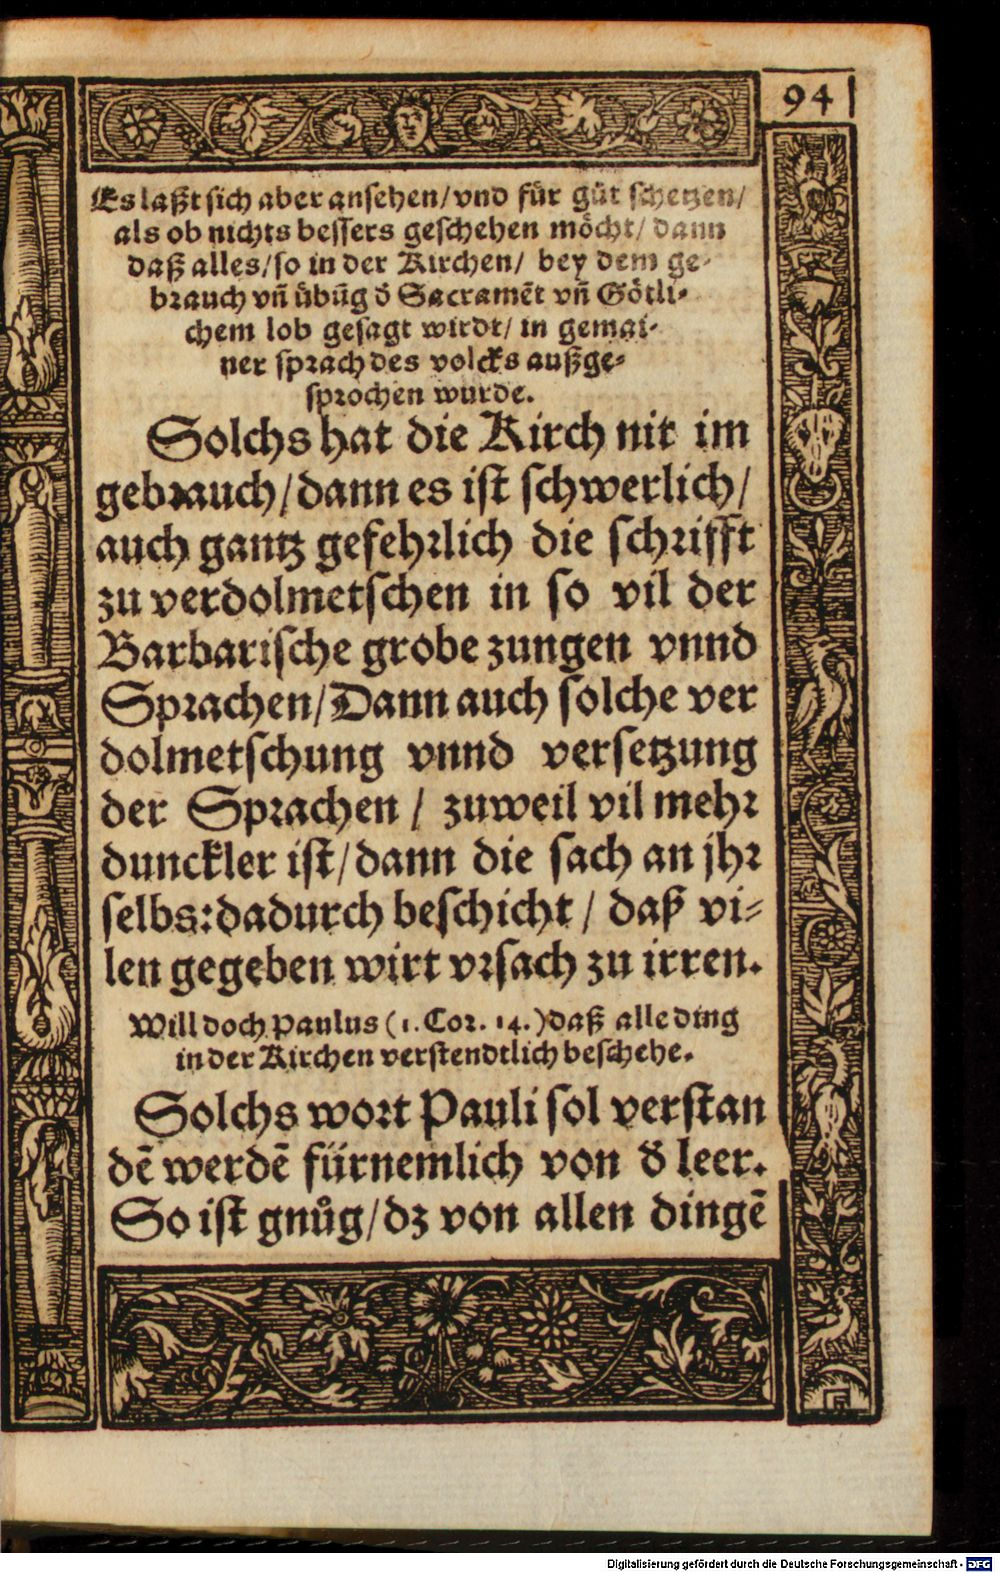 94
Es laßt sich aber ansehen/ vnd für gůt schetzen/
als ob nichts bessers geschehen möcht/ dann
daß alles/ so in der Kirchen/ bey dem ge-
brauch vñ übũg d̕ Sacramẽt vñ Götli-
chem lob gesagt wirdt/ in gemai-
ner sprach des volcks außge-
sprochen wurde.
Solchs hat die Kirch nit im
gebrauch/ dann es ist schwerlich/
auch gantz gefehrlich die schrifft
zu verdolmetschen in so vil der
Barbarische grobe zungen vnnd
Sprachen/ Dann auch solche ver
dolmetschung vnnd versetzung
der Sprachen / zuweil vil mehr
dunckler ist/ dann die sach an jhr
selbs: dadurch beschicht / daß vi-
len gegeben wirt vrsach zu irren.
Will doch Paulus (1. Cor. 14.) daß alle ding
in der Kirchen verstendtlich beschehe.
Solchs wort Pauli sol verstan
dẽ werdẽ fürnemlich von d̕ leer.
So ist gnůg/ dz von allen dingẽ
Digitalisierung gefördert durch die Deutsche Forschungsgemeinschaft - DFG